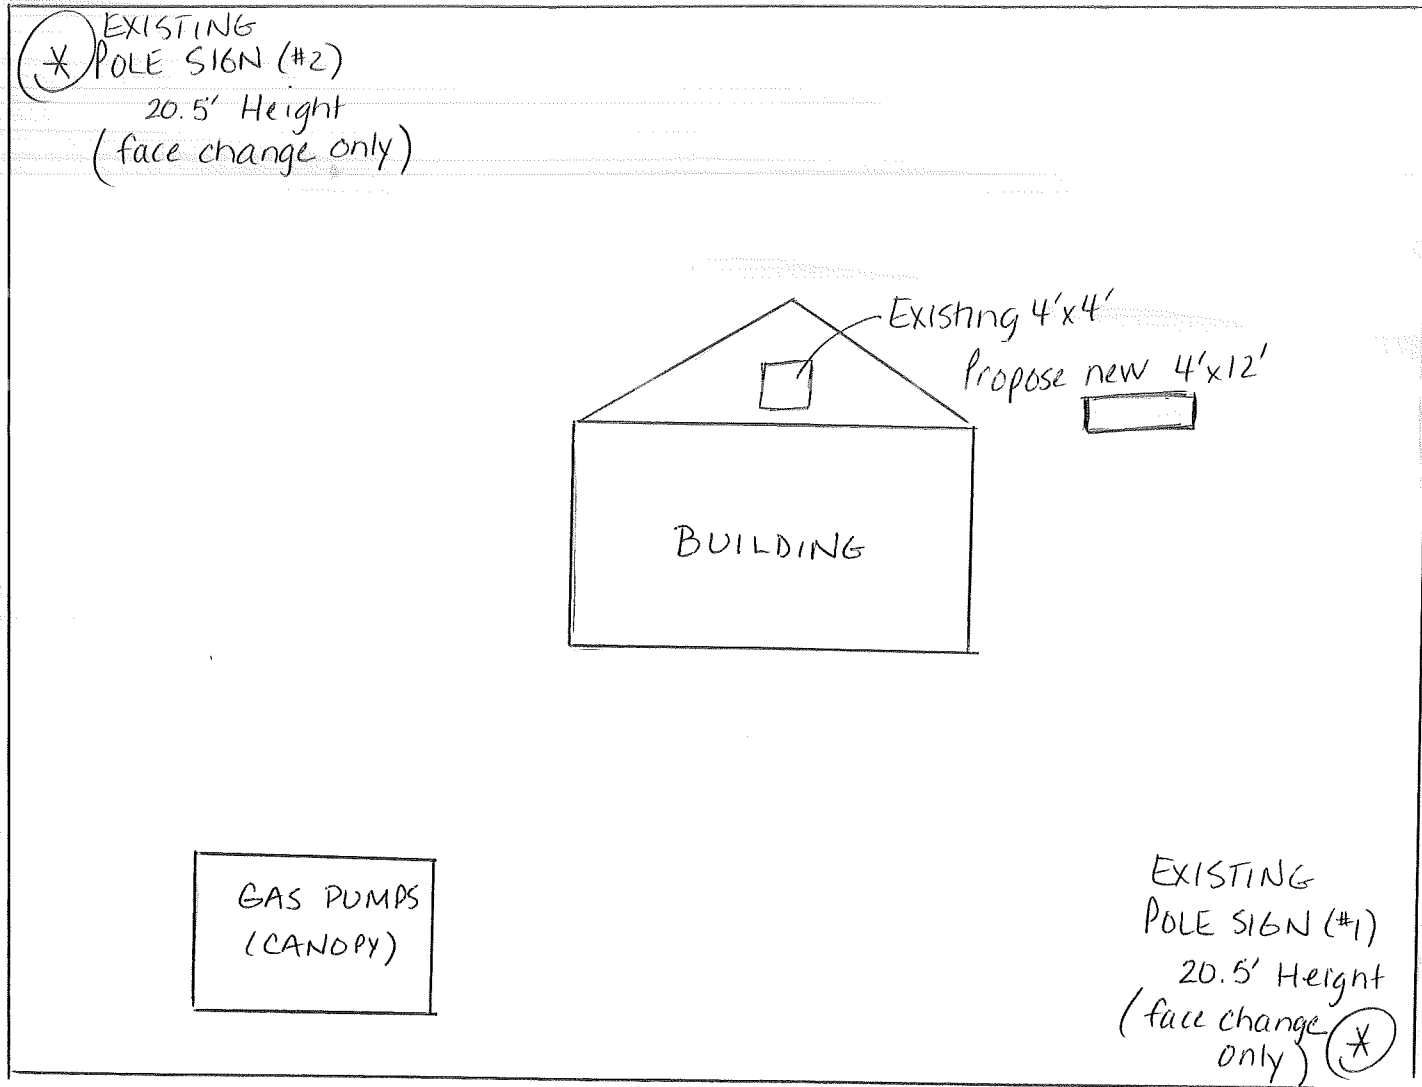 EXISTING
POLE SIGN (#2)
20.5' Height
(face change only)
Existing 4'x4'
Propose new 4'x12'
BUILDING
GAS PUMPS
(CANOPY)
EXISTING
POLE SIGN (#1)
20.5' Height
(face change
only)